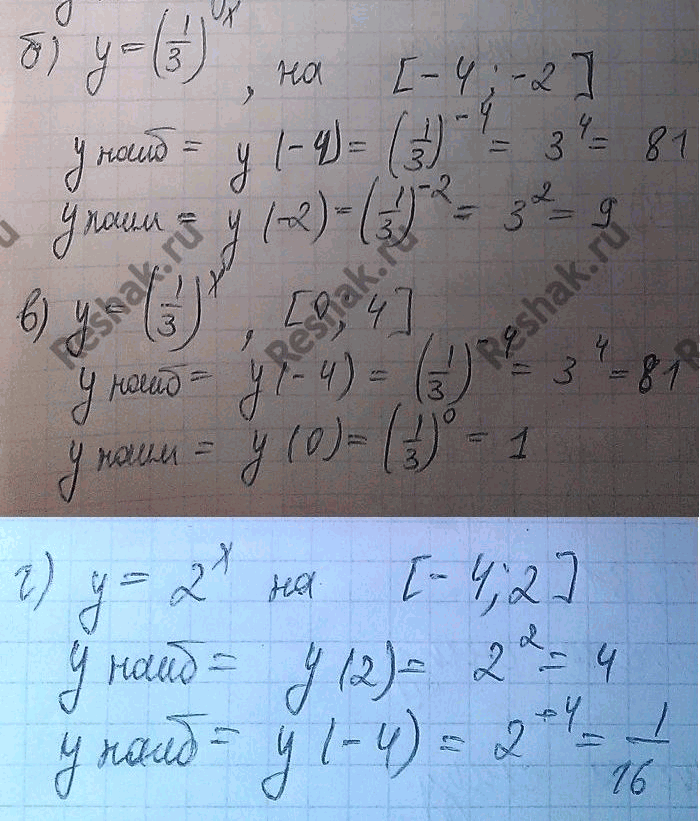 б) y = (1/3)^x, на [-4; -2]
y наиб = y (-4) = (1/3)^-4 = 3^4 = 81
y наим = y (-2) = (1/3)^-2 = 3^2 = 9
в) y = (1/3)^x, [0; 4]
y наиб = y (-4) = (1/3)^-4 = 3^4 = 81
y наим = y (0) = (1/3)^0 = 1
г) y = 2^x на [-4; 2]
y наиб = y (2) = 2^2 = 4
y наиб = y (-4) = 2^-4 = 1/16
Reshak.ru
Reshak.ru
Reshak.ru